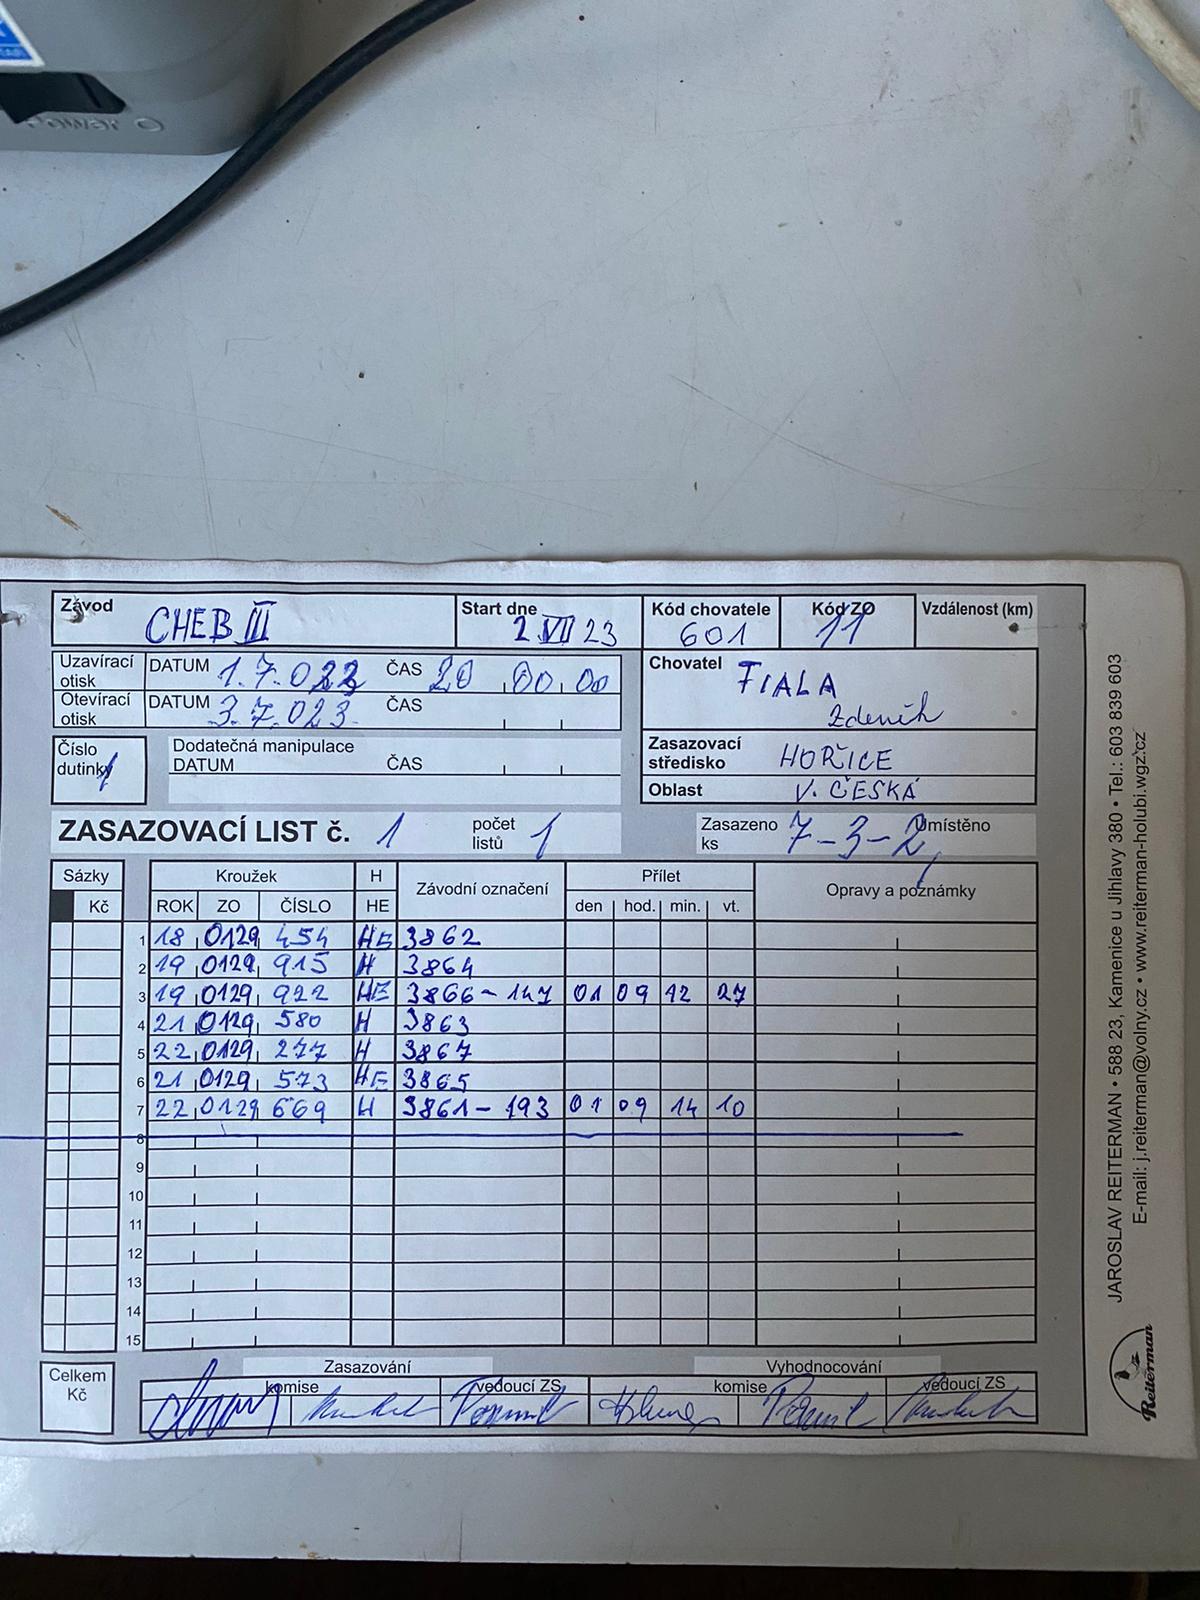 Power
Závod CHEB III
Start dne 2 VII 23
Kód chovatele 601
Kód ZO 11
Vzdálenost (km)
Uzavírací otisk DATUM 1.7.022 ČAS 20 00 00
Otevírací otisk DATUM 3.7.023. ČAS
Chovatel FIALA
Zdeněk
Číslo dutinky 1
Dodatečná manipulace
DATUM ČAS
Zasazovací středisko HOŘICE
Oblast V. ČESKÁ
ZASAZOVACÍ LIST č. 1 počet listů 1
Zasazeno ks 7-3-2 Umístěno
Sázky Kroužek H Závodní označení Přílet Opravy a poznámky
Kč ROK ZO ČÍSLO HE den hod. min. vt.
1 18 0129 454 HE 3862
2 19 0129 915 H 3864
3 19 0129 922 HE 3866-147 01 09 12 27
4 21 0129 580 H 3863
5 22 0129 277 H 3867
6 21 0129 573 HE 3865
7 22 0129 669 H 3861-193 01 09 14 10
8
9
10
11
12
13
14
15
Celkem Kč
Zasazování Vyhodnocování
komise vedoucí ZS komise vedoucí ZS
JAROSLAV REITERMAN • 588 23, Kamenice u Jihlavy 380 • Tel.: 603 839 603
E-mail: j.reiterman@volny.cz • www.reiterman-holubi.wgz.cz
Reiterman